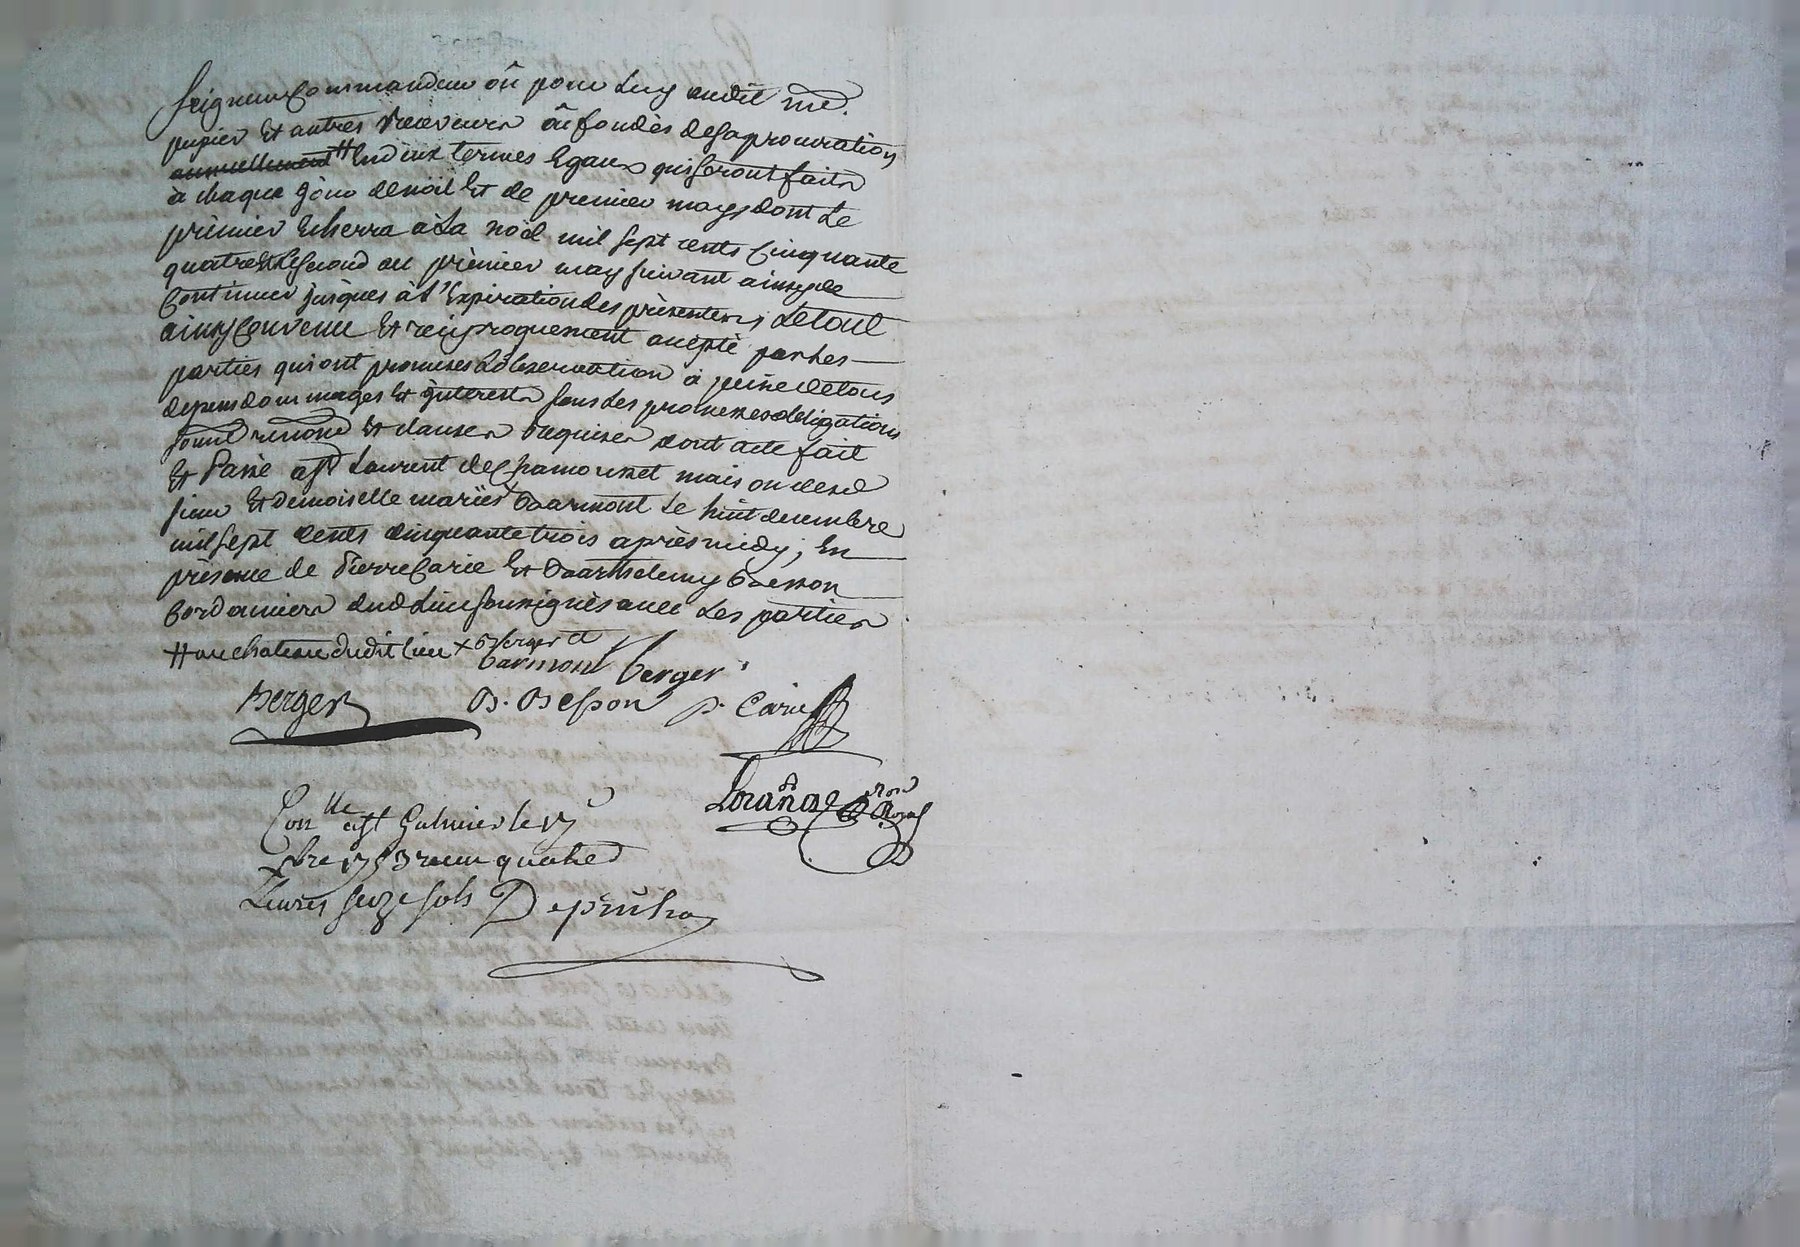 seigneur Commandeur oû pour Luy audit me.
pupier Et autres Receveurs oû fondès desa procuration
annuellement # En deux termes Egaux qui seront faits
à chaque jour denöel Et de premier may, dont Le
prèmier Echerra à La noël mil sept cents Cinquante
quatre Et Lesecond au prèmier may suivant ainsy de
Continuer jusques à L'Expiration des prèsentes, Le tout
ainsy Convenu Et reciproquement acepté par Les
parties qui ont promises L'observation à peine de tous
depens dommages Et interests sous Les promesses obligations
soumd renond Et clauses Requises dont acte fait
Et Passé à St Laurent de Chamousset maison desd
sieur Et demoiselle mariës Barmont Le huit decembre
mil sept cents cinquante trois après midy; En
prèsence de Pierre Carie Et Barthelemy Besson
Cordonniers dud Lieu soussignès avec Les parties
# au chateau dudit lieu x Berger et
Barmont berger
Berger B. Besson P. Carie
Lorange Nore Royal
Conlle a St Galmier le 17
xbre 1753 reçu quatre
Livres seize sols